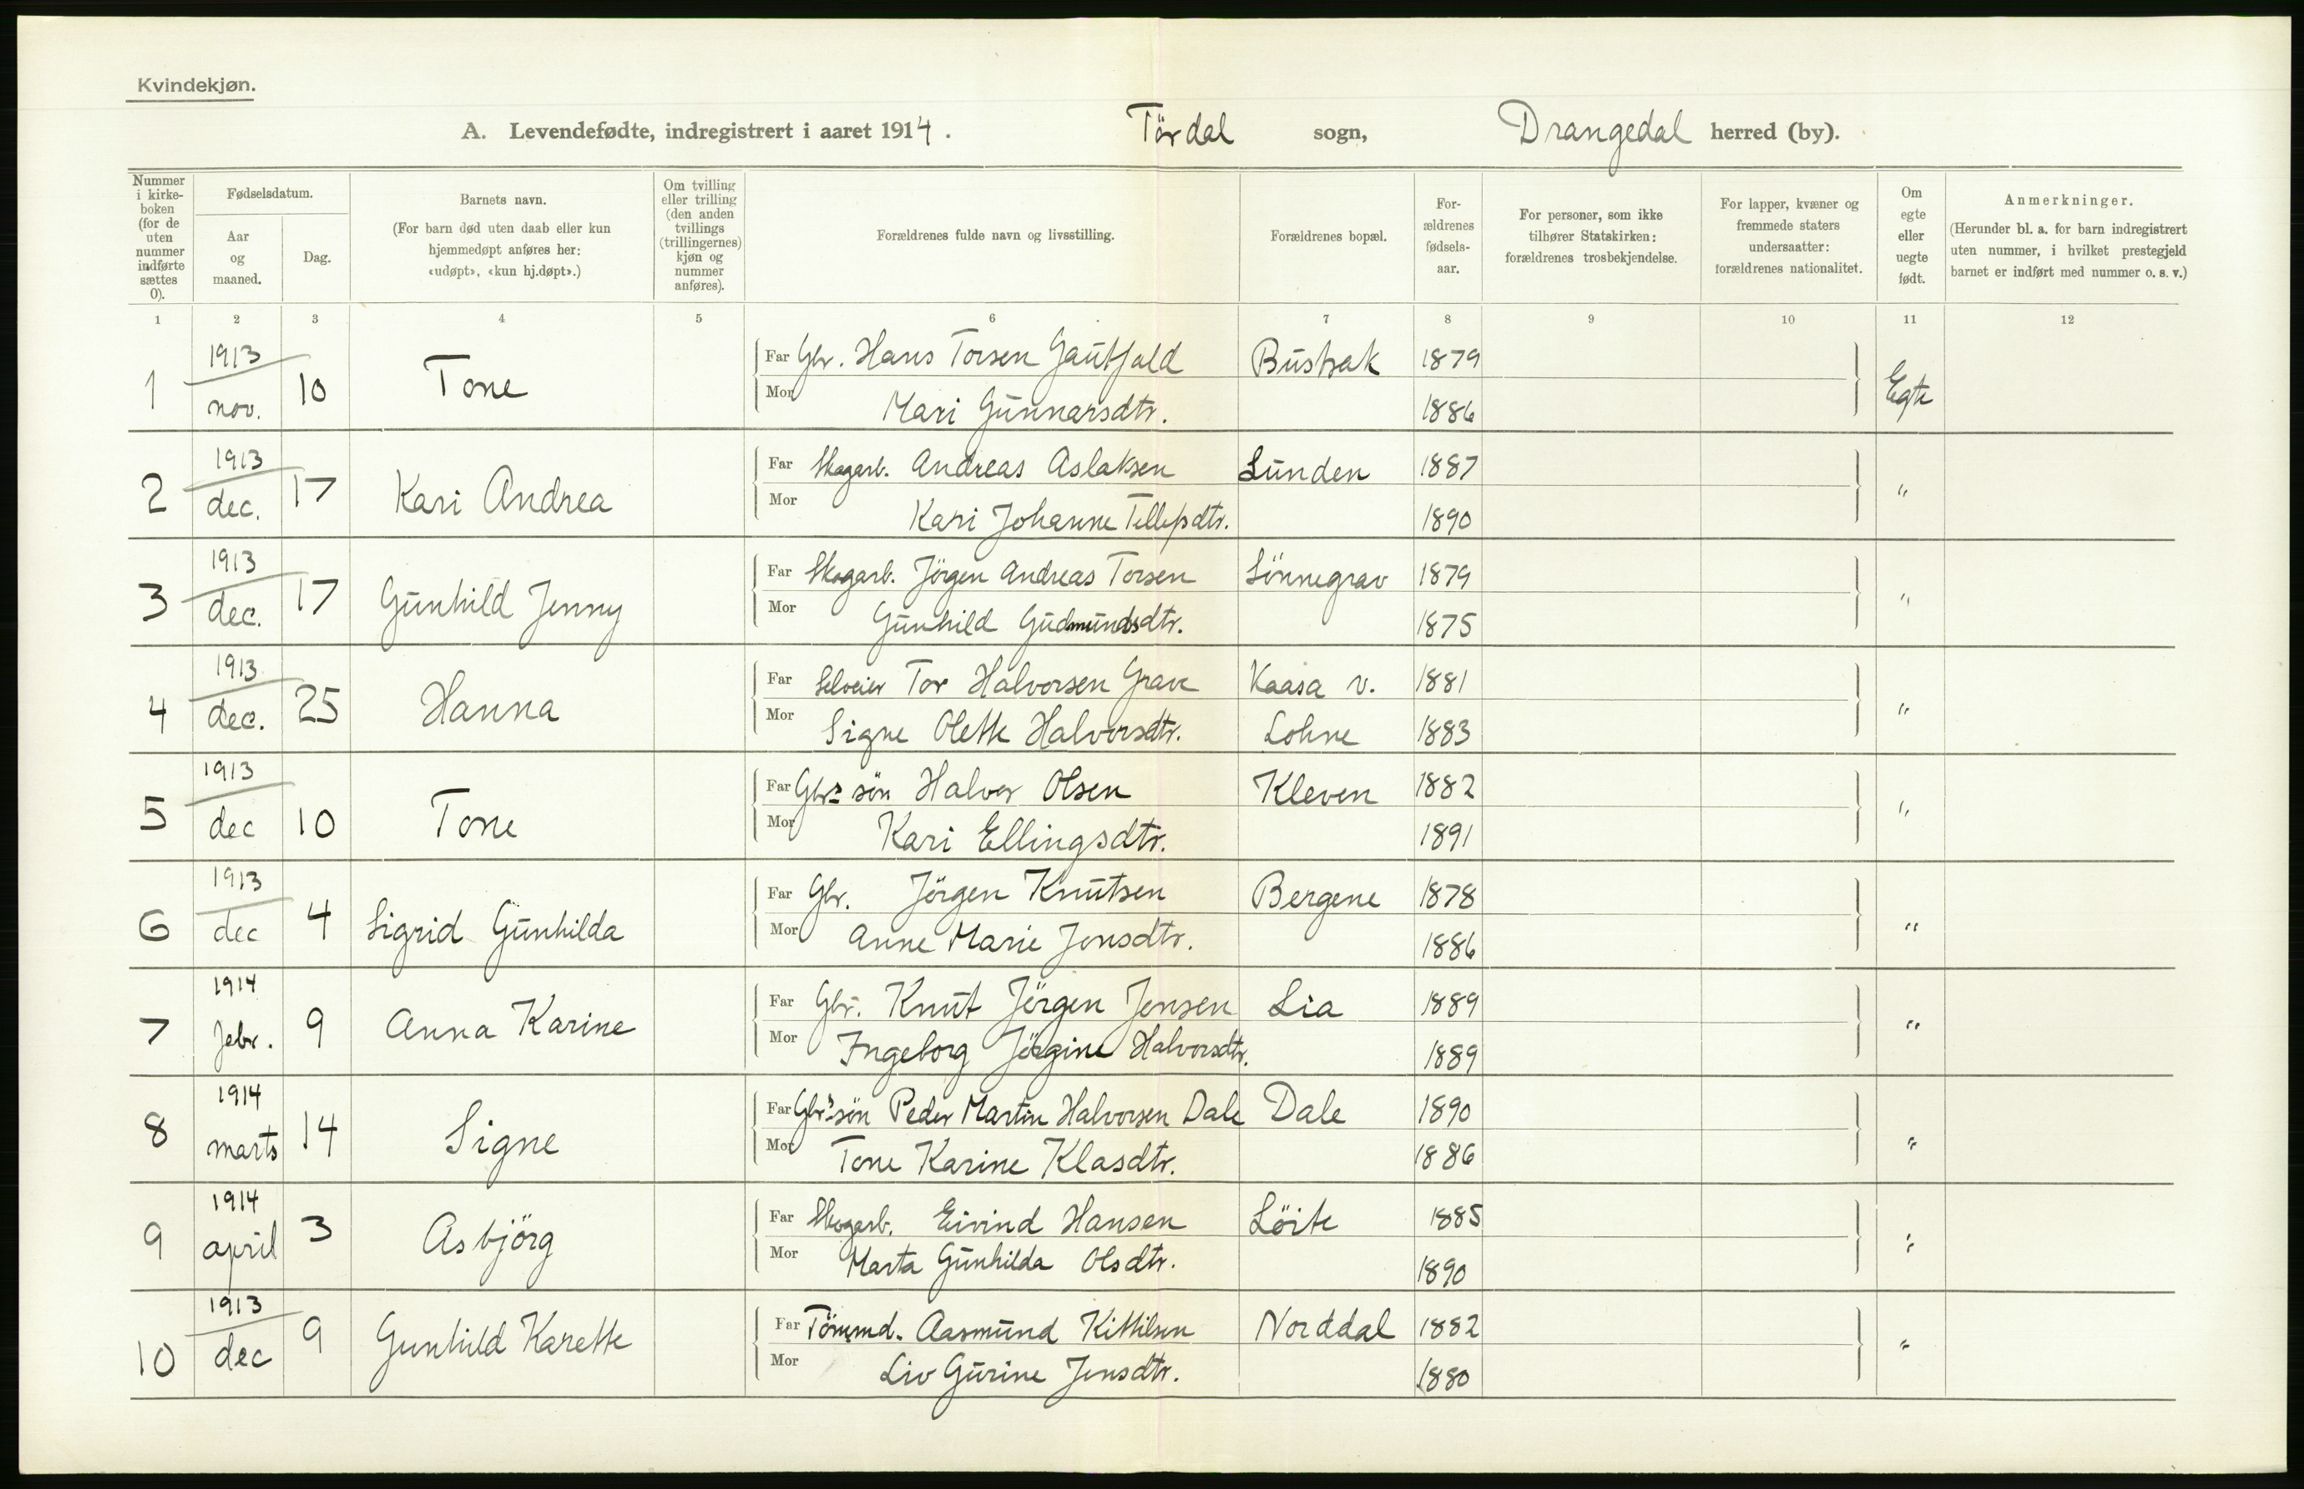 Kvindekjøn.
A. Levendefødte, indregistrert i aaret 1914. Tördal sogn, Drangedal herred (by).
Nummer i kirkeboken (for de uten nummer indførte sættes 0).
Fødselsdatum.
Aar og maaned.
Dag.
Barnets navn.
(For barn død uten daab eller kun hjemmedøpt anføres her: «udøpt», «kun hj.døpt».)
Om tvilling eller trilling (den anden tvillings (trillingernes) kjøn og nummer anføres).
Forældrenes fulde navn og livsstilling.
Forældrenes bopæl.
Forældrenes fødselsaar.
For personer, som ikke tilhører Statskirken: forældrenes trosbekjendelse.
For lapper, kvæner og fremmede staters undersaatter: forældrenes nationalitet.
Om egte eller uegte født.
Anmerkninger.
(Herunder bl. a. for barn indregistrert uten nummer, i hvilket prestegjeld barnet er indført med nummer o. s. v.)
1 2 3 4 5 6 7 8 9 10 11 12
1 1913 nov. 10 Tone Far Gbr. Hans Torsen Gautfald Bustrak 1879 Egte
Mor Mari Gunnarsdtr. 1886
2 1913 dec. 17 Kari Andrea Far Skogarb. Andreas Aslaksen Lunden 1887 "
Mor Kari Johanne Tellefsdtr. 1890
3 1913 dec. 17 Gunhild Jenny Far Skogarb. Jörgen Andreas Torsen Lönnegrav 1879 "
Mor Gunhild Gudmundsdtr. 1875
4 1913 dec. 25 Hanna Far Selveier Tor Halvorsen Grave Kaasa v. 1881 "
Mor Signe Olette Halvorsdtr. Lohne 1883
5 1913 dec 10 Tone Far Gbrs sön Halvor Olsen Kleven 1882 "
Mor Kari Ellingsdtr. 1891
6 1913 dec 4 Sigrid Gunhilda Far Gbr. Jörgen Knutsen Bergene 1878 "
Mor Anne Marie Jonsdtr. 1886
7 1914 febr. 9 Anna Karine Far Gbr. Knut Jörgen Jensen Lia 1889 "
Mor Ingeborg Jörgine Halvorsdtr. 1889
8 1914 marts 14 Signe Far Gbrs sön Peder Martin Halvorsen Dale Dale 1890 "
Mor Tone Karine Klasdtr. 1886
9 1914 april 3 Asbjörg Far Skogarb. Eivind Hansen Löite 1885 "
Mor Marta Gunhilda Olsdtr. 1890
10 1913 dec 9 Gunhild Karette Far Tömmd. Aasmund Kittilsen Norddal 1882 "
Mor Liv Gurine Jensdtr. 1880